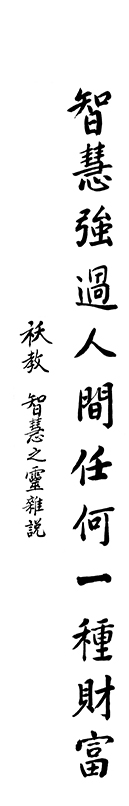 智慧強過人間任何一種財富
祆教 智慧之靈雜説